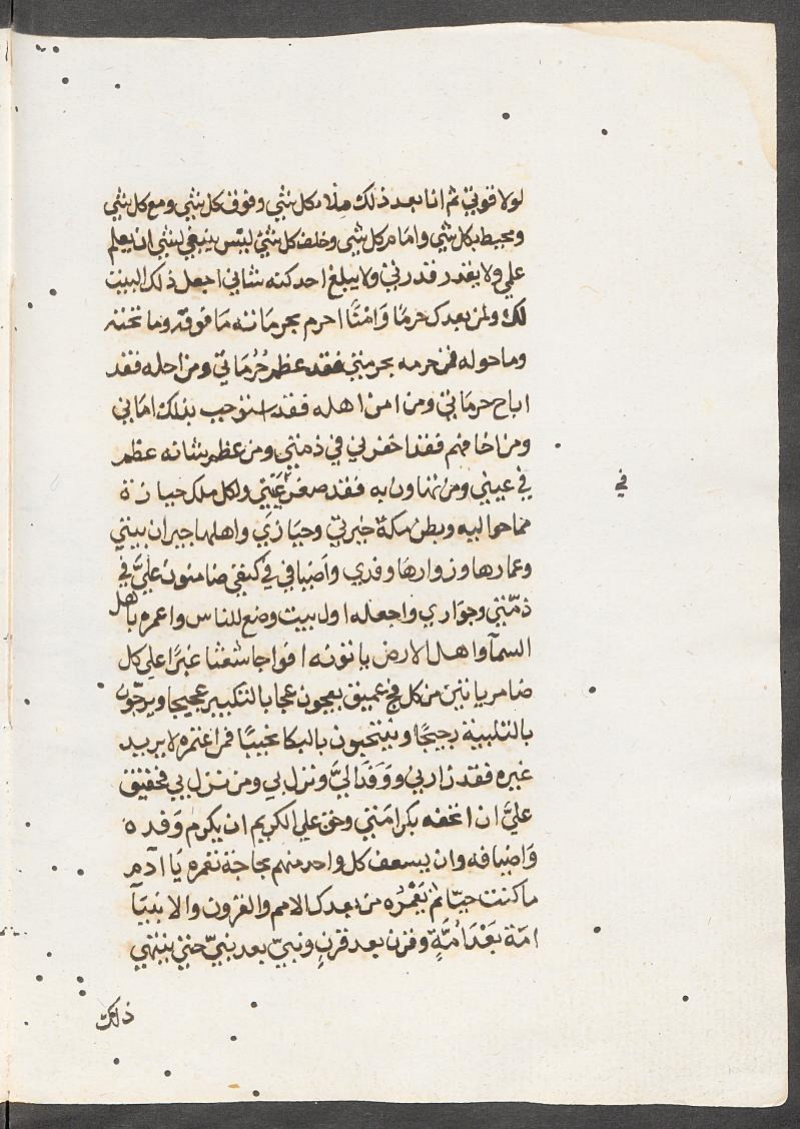 لولا قوتي ثم انا بعد ذلك ملأ كل شي وفوق كل شي ومع كل شي
ومحيط بكل شي وامام كل شي وخلف كل شي ليس ينبغي لشي ان يعلم
علمي ولا يقدر قدرتي ولا يبلغ احد كنه شاني اجعل ذلك البيت
لك ولمن بعدك حرمًا وَامْنًا احرم بحرماته مَا فوقه وما تحته
وما حوله فمن حرمه بحرمتي فقد عظم حُرُمَاتي ومن احله فقد
اباح حرماتي ومن امن اهله فقد استوجب بذلك امَاني
ومن اخافهم فقد اخفرني في ذمتي ومن عظم شانه عظم
في عيني ومن تهاون به فقد صغر عَيْني ولكل ملك حيازة
في
مما حواليه وبطن مكة خيرتي وحيَازتي واهلها جيران بيتي
وعمارها وزوارهَا وفدي وَاضيافي في كنفي ضامنون عليَّ في
ذمّتي وجوَاري واجعله اول بيت وضع للناس واعمره باهل
السمآ واهل الارض ياتونه افواجا شعثا غبرًا علي كل
ضامر ياتين من كل فج عميق يعجون عجا بالتكبير عجيجا ويرجّون
بالتلبية رجيجًا وينتحبون بالبكا نحيبًا فمن اعتمره لا يريد
غيره فقد زارني ووَفَدَ اليَّ ونزل بي ومن نزل بي فحقيق
عليَّ ان اتحفه بكرامَتي وحق علي الكريم ان يكرم وَفده
وَاضيافه وان يسعف كل واحد منهم بحاجة تعمره يَا ادم
ما كنت حيّا ثم يَعْمُرُه من بعدك الامم والقرون والانبيآ
امة بَعْدَ اُمَّةٍ وقرن بعد قرنٍ ونبيّ بعد نبيّ حتي ينتهي
ذلك